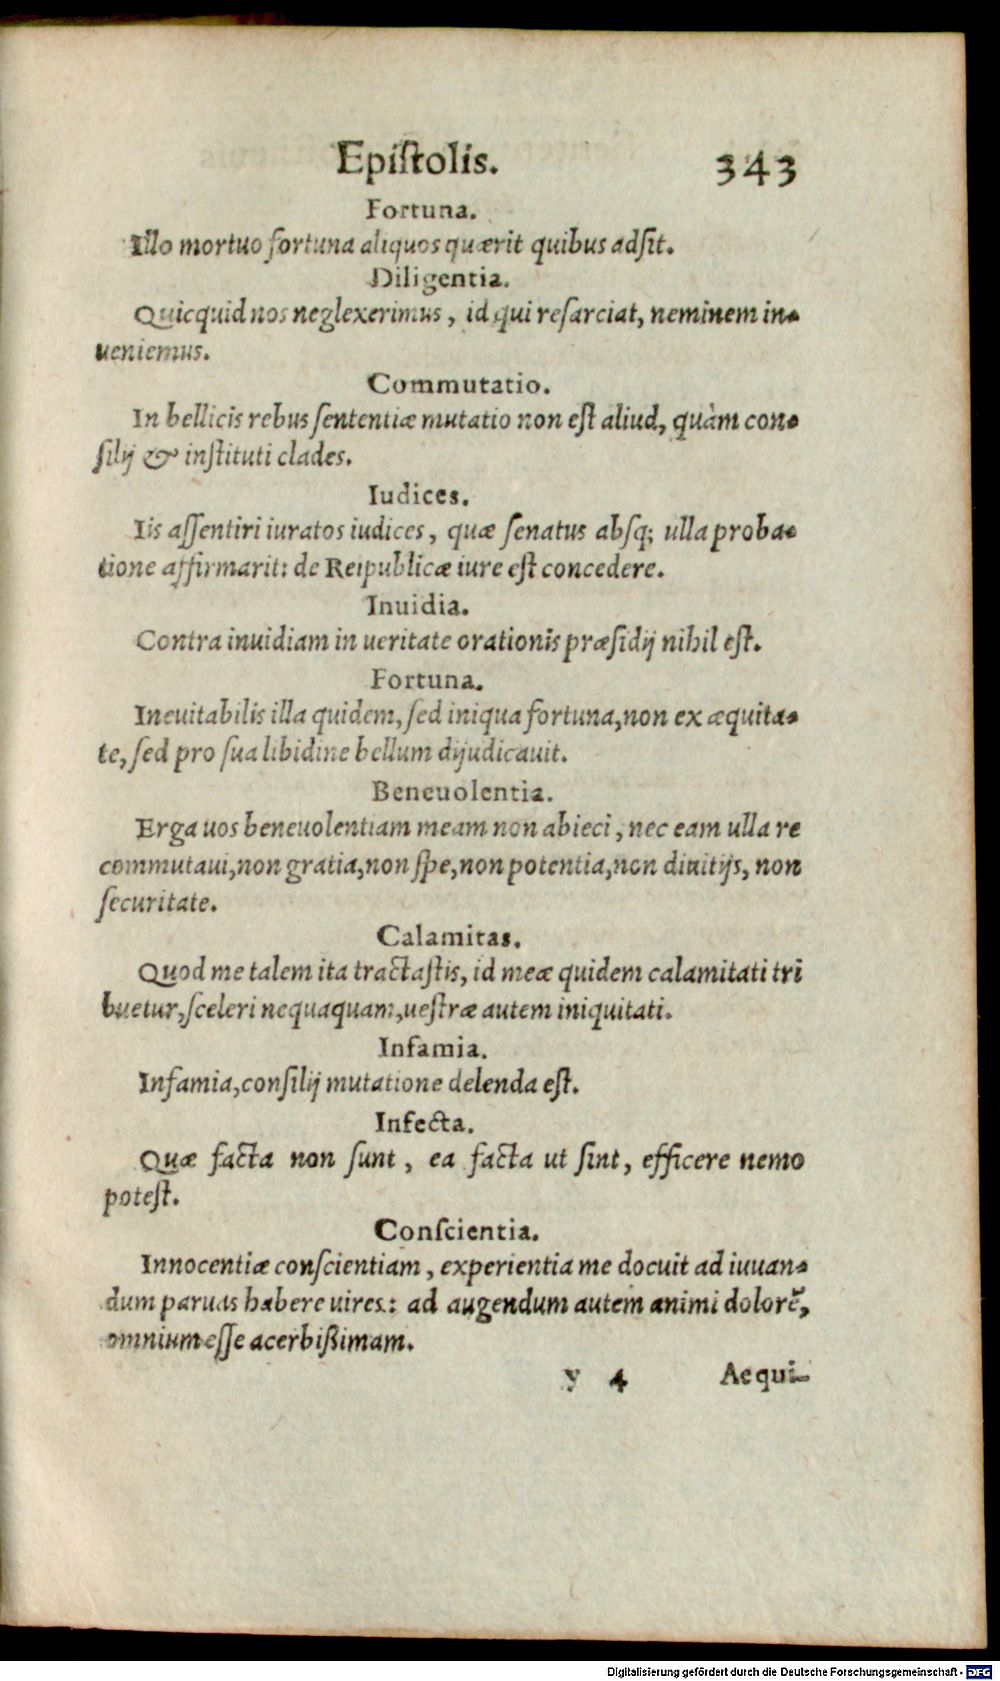 Epiſtolis. 343
Fortuna.
Illo mortuo fortuna aliquos quærit quibus adſit.
Diligentia.
Quicquid nos neglexerimus, id qui reſarciat, neminem in-
ueniemus.
Commutatio.
In bellicis rebus ſententiæ mutatio non eſt aliud, quàm con-
ſilij & inſtituti clades.
Iudices.
Iis aſſentiri iuratos iudices, quæ ſenatus abſq; ulla proba-
tione affirmarit: de Reipublicæ iure eſt concedere.
Inuidia.
Contra inuidiam in ueritate orationis præſidij nihil eſt.
Fortuna.
Ineuitabilis illa quidem, ſed iniqua fortuna, non ex æquita-
te, ſed pro ſua libidine bellum dijudicauit.
Beneuolentia.
Erga uos beneuolentiam meam non abieci, nec eam ulla re
commutaui, non gratia, non ſpe, non potentia, non diuitijs, non
ſecuritate.
Calamitas.
Quod me talem ita tractaſtis, id meæ quidem calamitati tri
buetur, ſceleri nequaquam, ueſtræ autem iniquitati.
Infamia.
Infamia, conſilij mutatione delenda eſt.
Infecta.
Quæ facta non ſunt, ea facta ut ſint, efficere nemo
poteſt.
Conſcientia.
Innocentiæ conſcientiam, experientia me docuit ad iuuan-
dum paruas habere uires: ad augendum autem animi dolorē,
omnium eſſe acerbißimam.
y 4 Aequi-
Digitalisierung gefördert durch die Deutsche Forschungsgemeinschaft - DFG